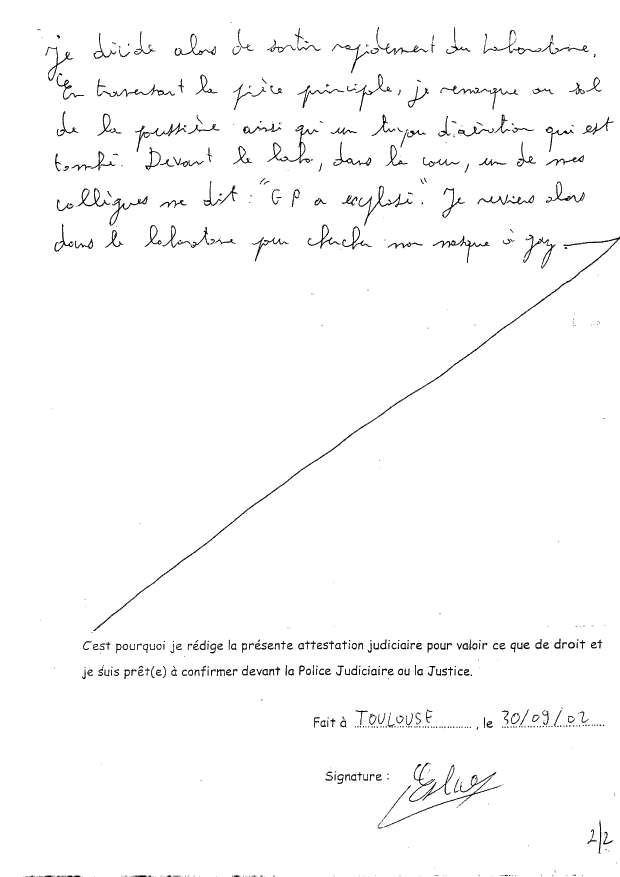 je décide alors de sortir rapidement du laboratoire.
En traversant la pièce principle, je remarque au sol
de la poussière ainsi qu'un tuyau d'aération qui est
tombé. Devant le labo, dans la cour, un de mes
collègues me dit : "GP a explosé". Je reviens alors
dans le laboratoire pour chercher mon masque à gaz.
C'est pourquoi je rédige la présente attestation judiciaire pour valoir ce que de droit et
je suis prêt(e) à confirmer devant la Police Judiciaire ou la Justice.
Fait à TOULOUSE, le 30/09/02
Signature :
2/2